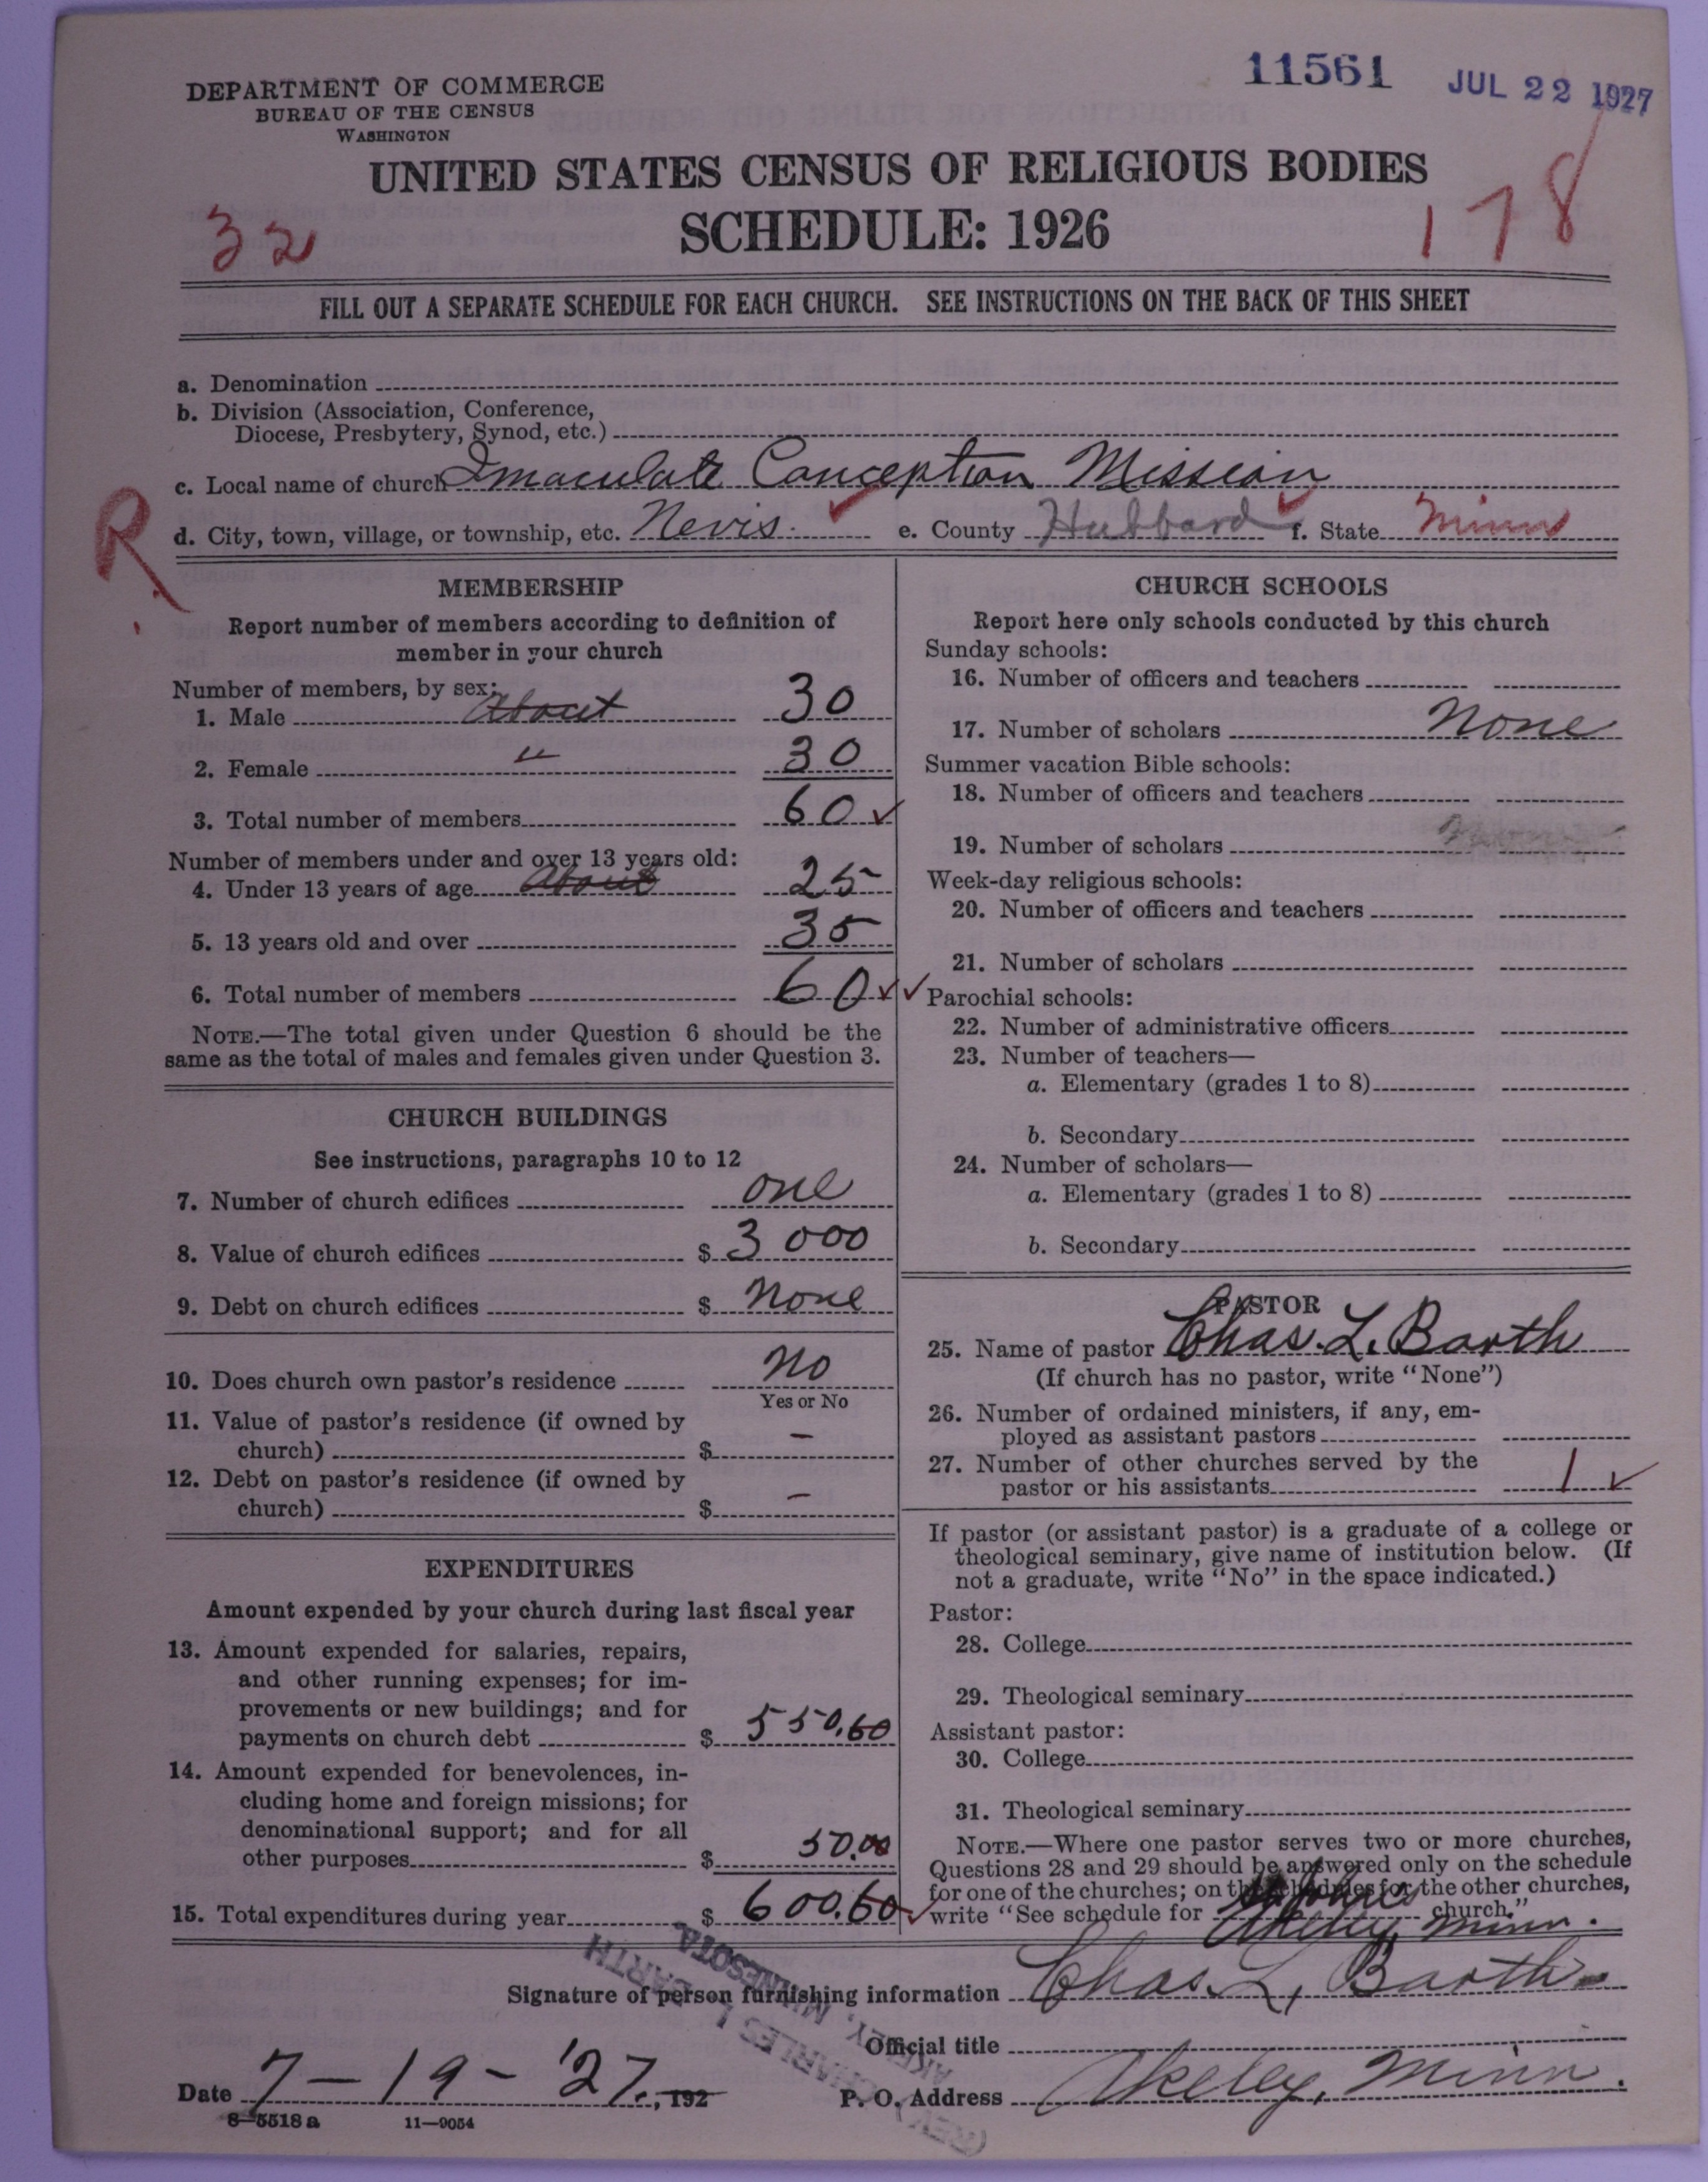 11561 JUL 22 1927
DEPARTMENT OF COMMERCE
BUREAU OF THE CENSUS
WASHINGTON
UNITED STATES CENSUS OF RELIGIOUS BODIES
SCHEDULE: 1926
32
178
FILL OUT A SEPARATE SCHEDULE FOR EACH CHURCH. SEE INSTRUCTIONS ON THE BACK OF THIS SHEET
a. Denomination
b. Division (Association, Conference,
Diocese, Presbytery, Synod, etc.)
c. Local name of church Imaculate Conception Mission
R.
d. City, town, village, or township, etc. Nevis. e. County Hubbard f. State Minn
MEMBERSHIP
Report number of members according to definition of
member in your church
Number of members, by sex:
1. Male About 30
2. Female " 30
3. Total number of members 60 ✓
Number of members under and over 13 years old:
4. Under 13 years of age About 25
5. 13 years old and over 35
6. Total number of members 60 ✓✓
NOTE.—The total given under Question 6 should be the
same as the total of males and females given under Question 3.
CHURCH BUILDINGS
See instructions, paragraphs 10 to 12
7. Number of church edifices one
8. Value of church edifices $ 3 000
9. Debt on church edifices $ None
10. Does church own pastor's residence No
Yes or No
11. Value of pastor's residence (if owned by
church) $ –
12. Debt on pastor's residence (if owned by
church) $ –
EXPENDITURES
Amount expended by your church during last fiscal year
13. Amount expended for salaries, repairs,
and other running expenses; for im-
provements or new buildings; and for
payments on church debt $ 550.60
14. Amount expended for benevolences, in-
cluding home and foreign missions; for
denominational support; and for all
other purposes $ 50.00
15. Total expenditures during year $ 600.60 ✓
CHURCH SCHOOLS
Report here only schools conducted by this church
Sunday schools:
16. Number of officers and teachers
17. Number of scholars None
Summer vacation Bible schools:
18. Number of officers and teachers
19. Number of scholars
Week-day religious schools:
20. Number of officers and teachers
21. Number of scholars
Parochial schools:
22. Number of administrative officers
23. Number of teachers—
a. Elementary (grades 1 to 8)
b. Secondary
24. Number of scholars—
a. Elementary (grades 1 to 8)
b. Secondary
PASTOR
25. Name of pastor Chas. L. Barth
(If church has no pastor, write "None")
26. Number of ordained ministers, if any, em-
ployed as assistant pastors
27. Number of other churches served by the
pastor or his assistants 1 ✓
If pastor (or assistant pastor) is a graduate of a college or
theological seminary, give name of institution below. (If
not a graduate, write "No" in the space indicated.)
Pastor:
28. College
29. Theological seminary
Assistant pastor:
30. College
31. Theological seminary
NOTE.—Where one pastor serves two or more churches,
Questions 28 and 29 should be answered only on the schedule
for one of the churches; on the schedules for the other churches,
write "See schedule for church."
Akeley, Minn.
Signature of person furnishing information Chas. L. Barth
Official title
Date 7–19–'27, 192 P. O. Address Akeley, Minn.
8—5518 a 11—9054
(REV.) CHARLES L BARTH
AKELEY, MINNESOTA